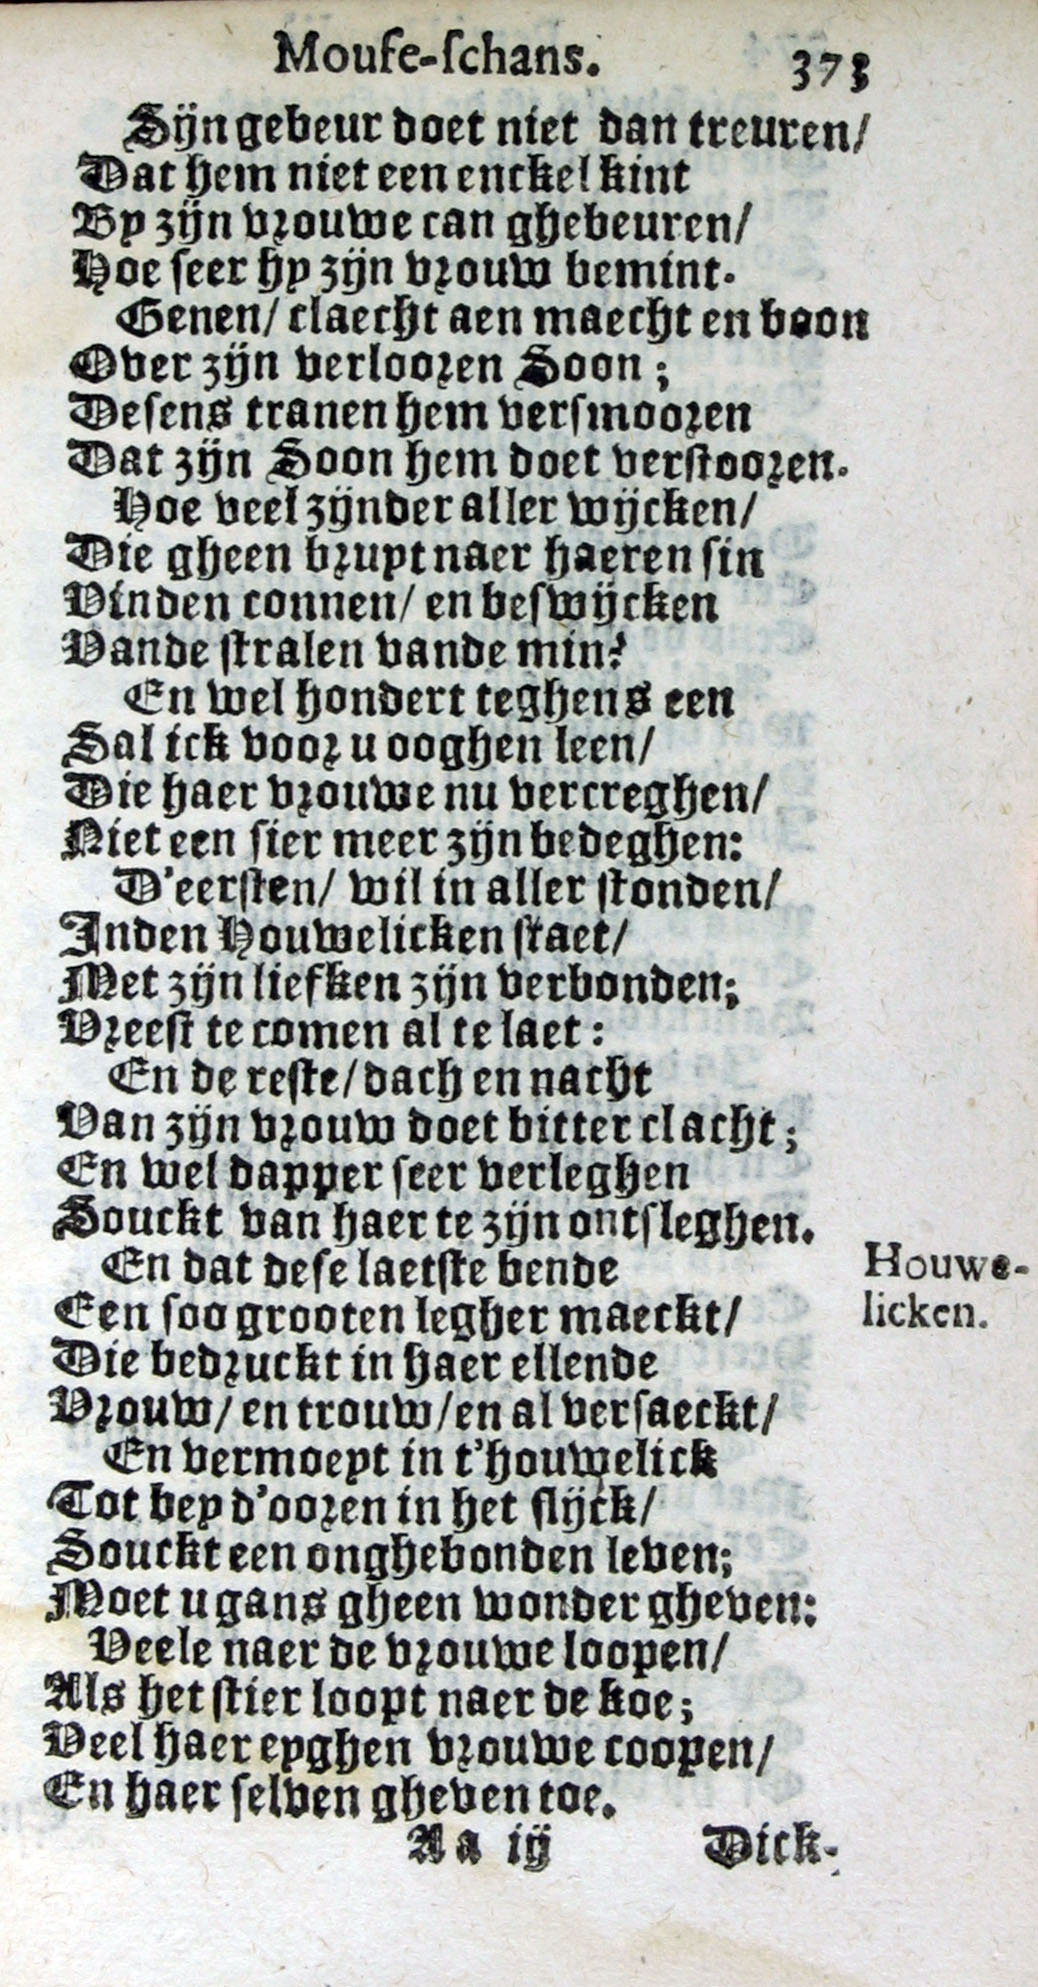 Mouſe-ſchans. 373
Sijn gebeur doet niet dan treuren/
Dat hem niet een enckel kint
By zijn vrouwe can ghebeuren/
Hoe ſeer hy zijn vrouw bemint.
Genen/ claecht aen maecht en boon
Over zijn verlooren Soon;
Deſens tranen hem verſmooren
Dat zijn Soon hem doet verſtooren.
Hoe veel zijnder aller wijcken/
Die gheen bruyt naer haeren ſin
Vinden connen/ en beſwijcken
Vande ſtralen vande min?
En wel hondert teghens een
Sal ick voor u ooghen leen/
Die haer vrouwe nu vercreghen/
Niet een ſier meer zijn bedeghen:
D'eerſten/ wil in aller ſtonden/
Inden Houwelicken ſtaet/
Met zijn liefken zijn verbonden;
Vreeſt te comen al te laet:
En de reſte/ dach en nacht
Van zijn vrouw doet bitter clacht;
En wel dapper ſeer verleghen
Souckt van haer te zijn ontſleghen.
En dat deſe laetſte bende
Een ſoo grooten legher maeckt/
Die bedruckt in haer ellende
Vrouw/ en trouw/ en al verſaeckt/
En vermoeyt in t'houwelick
Tot bey d'ooren in het ſlijck/
Souckt een onghebonden leven;
Moet u gans gheen wonder gheven:
Veele naer de vrouwe loopen/
Als het ſtier loopt naer de koe;
Veel haer eyghen vrouwe coopen/
En haer ſelven gheven toe.
Houwe-
licken.
Aa ij Dick-